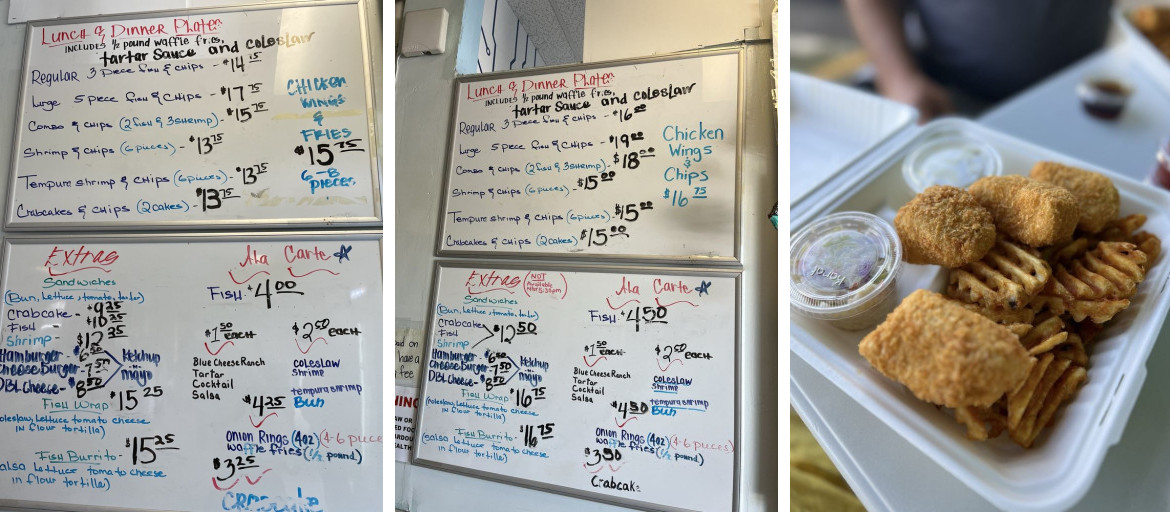 Lunch & Dinner Plates
INCLUDES ½ pound waffle fries,
tartar Sauce and coleslaw
Regular 3 Piece fish & chips - $14 75
Large 5 piece fish & chips - $17 75
Combo & chips (2 fish & 3 shrimp) - $15 75
Shrimp & chips (6 pieces) - $13 75
Tempura shrimp & chips (6 pieces) - $13 75
Crabcakes & chips (2 cakes) - $13 75
CHICKEN
WINGS
&
FRIES
$15 75
6-8
pieces
Extras
Sandwiches
(Bun, lettuce, tomato, tartar)
Crabcake - $9 25
Fish - $10 25
Shrimp - $12 25
Hamburger - $6 50
Cheese Burger - $7 50
DBL Cheese - $8 50
Ketchup
mayo
Fish Wrap $15 25
coleslaw, lettuce tomato cheese
in flour tortilla)
Fish Burrito - $15 25
salsa lettuce tomato cheese
in flour tortilla)
Ala Carte
Fish - $4 00
$1 50 each
Blue Cheese Ranch
Tartar
Cocktail
Salsa
$2 50 each
coleslaw
shrimp
tempura shrimp
Bun
$4 25
Onion Rings (4oz) (4-6 piece
waffle fries (½ pound)
$3 25
Crabcake
Lunch & Dinner Plates
INCLUDES ½ pound waffle fries,
tartar Sauce and coleslaw
Regular 3 Piece fish & chips - $16 00
Large 5 piece fish & chips - $19 00
Combo & chips (2 fish & 3 shrimp) - $18 00
Shrimp & chips (6 pieces) - $15 00
Tempura shrimp & chips (6 pieces) - $15 00
Crabcakes & chips (2 cakes) $15 00
Chicken
Wings
&
Chips
$16 75
Extras
(NOT
Available
after 5:30pm)
Sandwiches
(Bun, lettuce, tomato, tartar)
Crabcake
Fish
Shrimp
$12 50
Hamburger - $6 50
Cheese Burger - $7 50
DBL Cheese - $8 50
Ketchup
mayo
Fish Wrap - $16 75
(coleslaw, lettuce tomato cheese
in flour tortilla)
Fish Burrito - $16 75
(salsa lettuce tomato cheese
in flour tortilla)
Ala Carte
Fish - $4 50
$1 50 each
Blue Cheese Ranch
Tartar
Cocktail
Salsa
$2 50 each
coleslaw
shrimp
tempura shrimp
Bun
$4 50
Onion Rings (4oz) (4-6 pieces)
waffle fries (½ pound)
$3 50
Crabcake